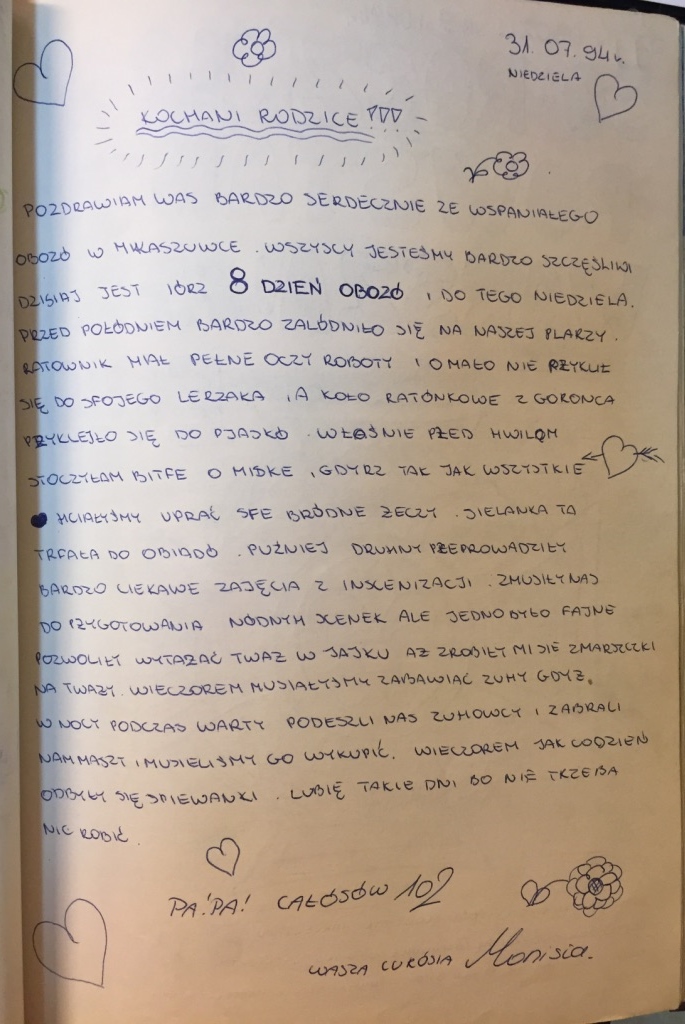 31. 07. 94r.
NIEDZIELA
KOCHANI RODZICE!!!
POZDRAWIAM WAS BARDZO SERDECZNIE ZE WSPANIAŁEGO
OBOZÓ W MIKASZUWCE. WSZYSCY JESTEŚMY BARDZO SZCZĘŚLIWI
DZISIAJ JEST IÓRZ 8 DZIEŃ OBOZÓ, I DO TEGO NIEDZIELA.
PRZED POŁÓDNIEM BARDZO ZALÓDNIŁO SIĘ NA NASZEJ PLARZY.
RATOWNIK MIAŁ PEŁNE OCZY ROBOTY I O MAŁO NIE PZYKUŁ
SIĘ DO SFOJEGO LERZAKA, A KOŁO RATÓNKOWE Z GORONCA
PRZYKLEJŁO SIĘ DO PJASKÓ. WŁAŚNIE PŻED HWILOM
STOCZYŁAM BITFE O MISKE, GDYRZ TAK JAK WSZYSTKIE
HCIAŁYŚMY UPRAĆ SFE BRÓDNE ŻECZY. SIELANKA TA
TRFAŁA DO OBIADÓ. PUŹNIEJ DRUHNY PŻEPROWADZIŁY
BARDZO CIEKAWE ZAJĘCIA Z INSCENIZACJI. ZMUSIŁY NAS
DO PZYGOTOWANIA NÓDNYH SCENEK ALE JEDNO BYŁO FAJNE
POZWOLIŁY WYTAZAĆ TWAZ W JAJKU AZ ZROBIŁY MI SIE ZMARSZCZKI
NA TWAZY. WIECZOREM MUSIAŁYŚMY ZABAWIAĆ ZUHY GDYZ,
W NOCY PODCZAS WARTY PODESZLI NAS ZUHOWCY I ZABRALI
NAM MASZT I MUSIELIŚMY GO WYKUPIĆ. WIECZOREM JAK CODZIEŃ
ODBYŁY SIĘ ŚPIEWANKI. LUBIĘ TAKIE DNI BO NIE TRZEBA
NIC ROBIĆ.
PA! PA! CAŁÓSÓW 102
WASZA CURÓSIA Monisia.